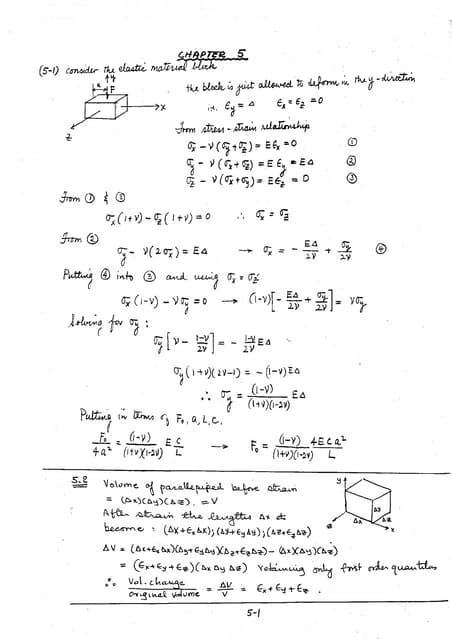 CHAPTER 5
(5-1) Consider the elastic material block
the block is just allowed to deform in the y-direction
i.e. Ey = Δ Ex = Ez = 0
y
F
x
z
From stress-strain relationship
σx - ν(σy + σz) = E Ex = 0 ①
σy - ν(σx + σz) = E Ey = EΔ ②
σz - ν(σx + σy) = E Ez = 0 ③
From ① & ③
σx(1+ν) - σz(1+ν) = 0 ∴ σx = σz
From ②
σy - ν(2σx) = EΔ → σx = - EΔ/2ν + σy/2ν ④
Putting ④ into ③ and using σx = σz
σx(1-ν) - νσy = 0 → (1-ν)[- EΔ/2ν + σy/2ν] = νσy
Solving for σy :
σy[ν - (1-ν)/2ν] = - (1-ν)/2ν EΔ
σy(1+ν)(2ν-1) = -(1-ν)EΔ
∴ σy = (1-ν)/(1+ν)(1-2ν) EΔ
Putting in terms of F₀, a, L, C,
F₀/4a² = (1-ν)/(1+ν)(1-2ν) E C/L → F₀ = (1-ν)/(1+ν)(1-2ν) 4ECa²/L
5.2 Volume of parallepiped before strain
= (Δx)(Δy)(Δz). = V
After strain the lengths Δx etc
become : (Δx+ExΔx);(Δy+EyΔy);(Δz+EzΔz)
y
Δy
Δx
Δz
x
z
ΔV = (Δx+ExΔx)(Δy+EyΔy)(Δz+EzΔz) - (Δx)(Δy)(Δz)
= (Ex+Ey+Ez)(Δx Δy Δz) retaining only first order quantities
∴ Vol. change/original volume = ΔV/V = Ex + Ey + Ez.
5-1